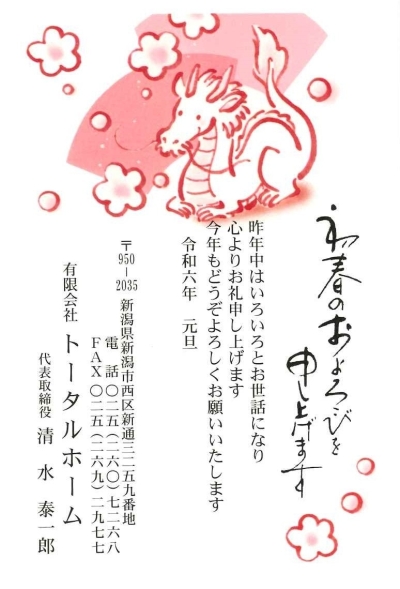 初春のおよろこびを
申し上げます
昨年中はいろいろとお世話になり
心よりお礼申し上げます
今年もどうぞよろしくお願いいたします
令和六年　元旦
〒950-2035 新潟県新潟市西区新通三二五九番地
電話〇二五(二六〇)七二六八
FAX〇二五(二六九)二九七七
有限会社 トータルホーム
代表取締役 清水泰一郎